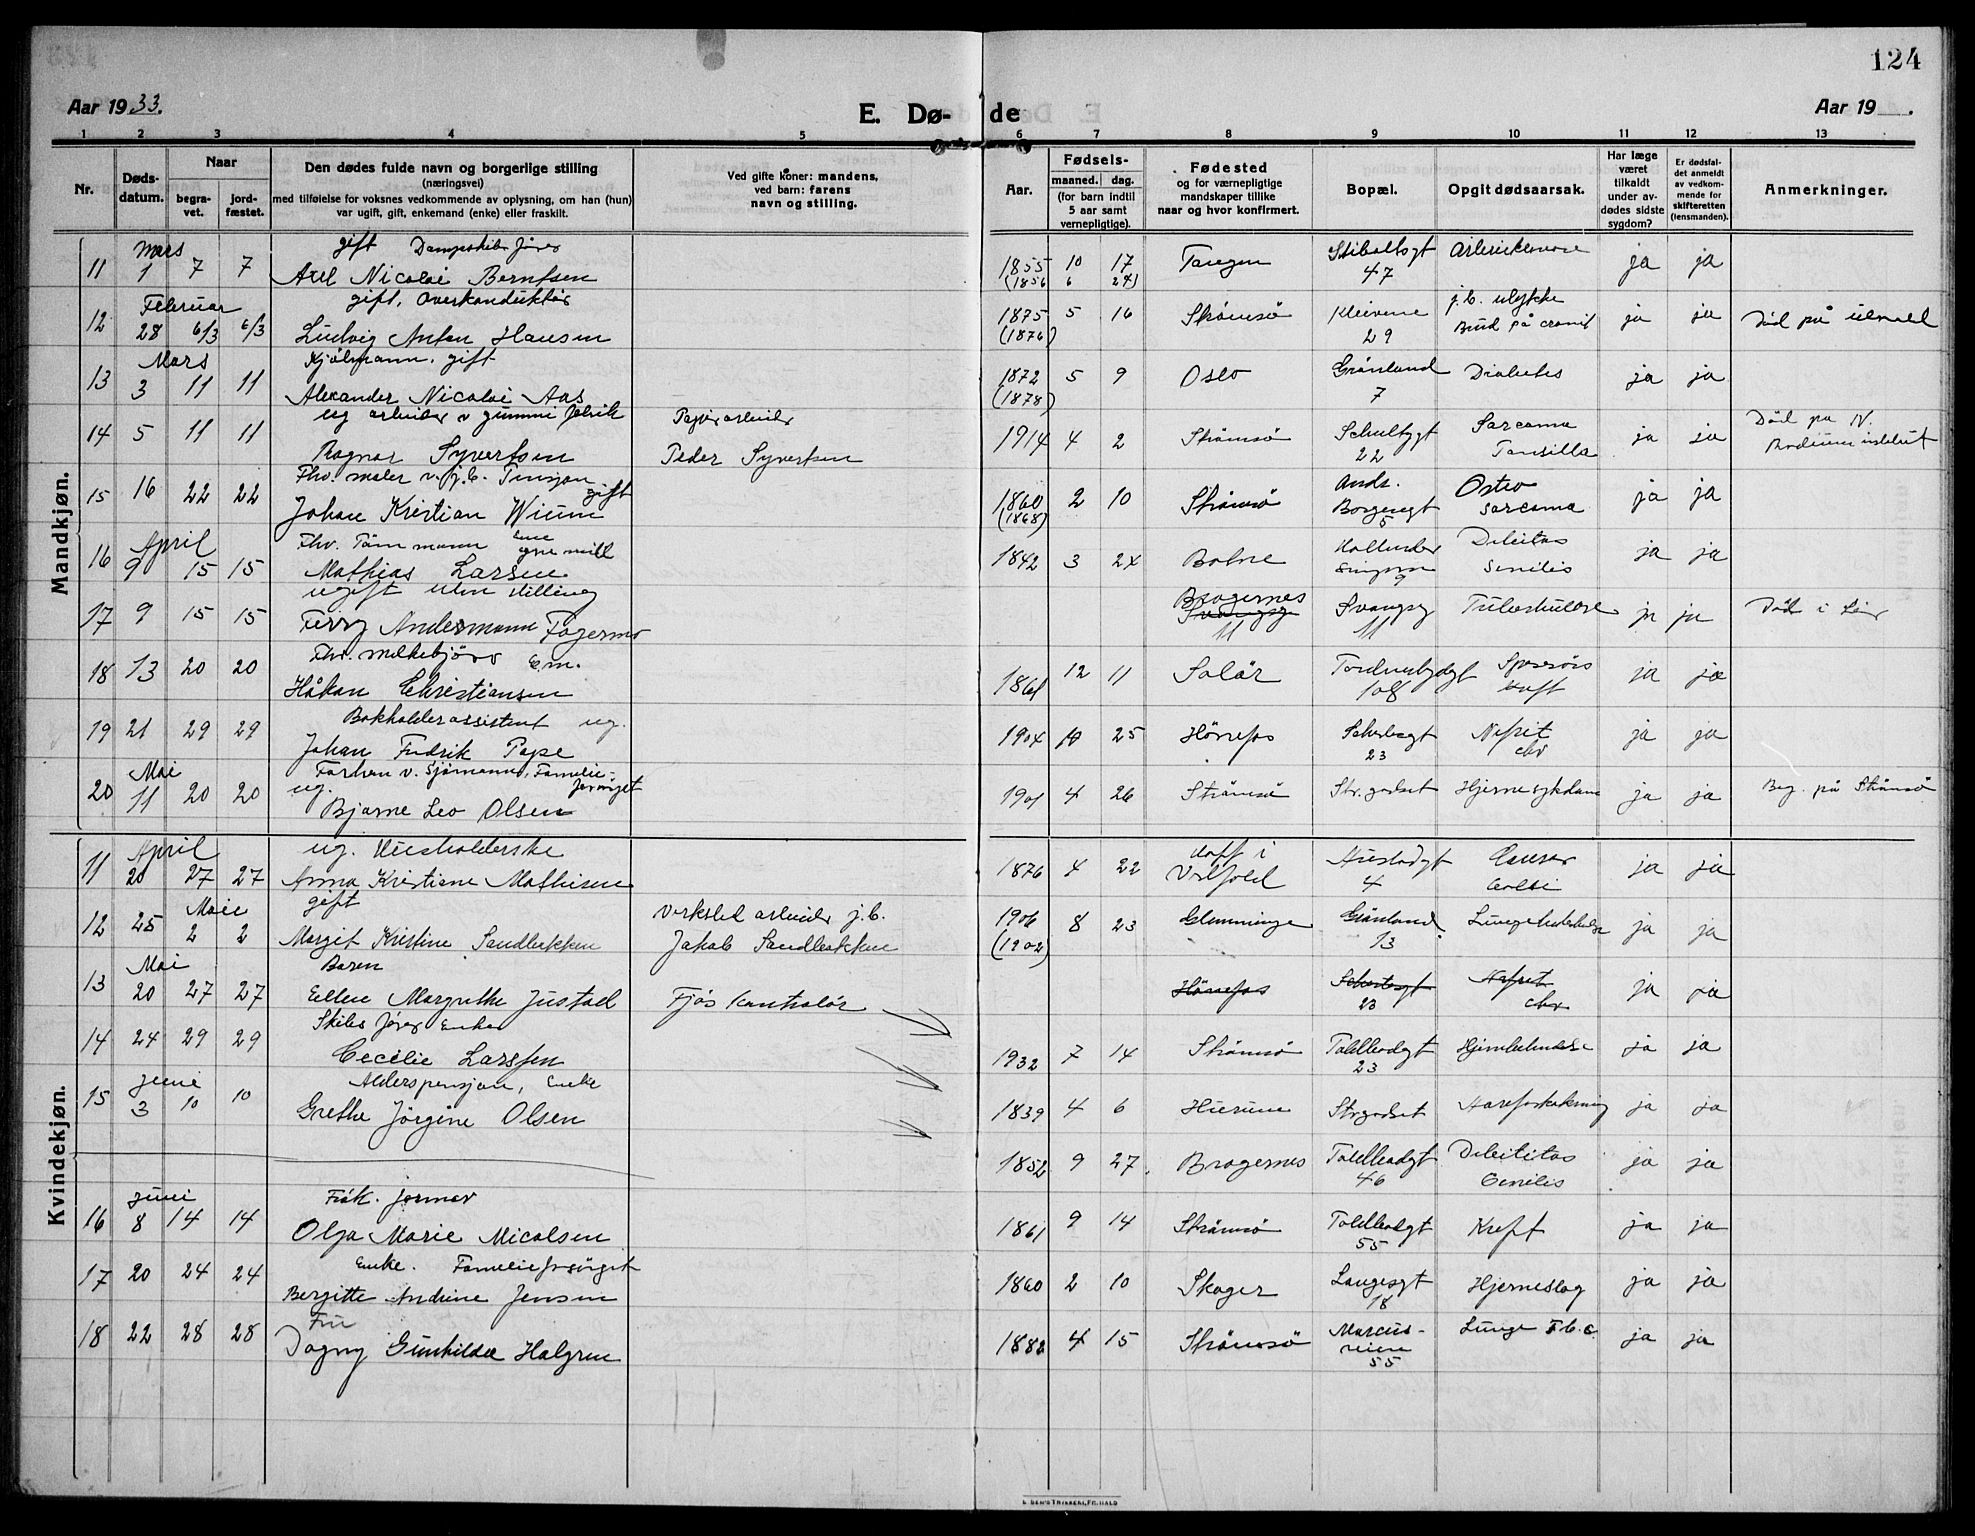 124
Aar 1933.
E. Dø-
de
Aar 19 .
1 2 3 4 5 6 7 8 9 10 11 12 13
Nr.
Døds-
datum.
Naar
begra-
vet.
jord-
fæstet.
Den dødes fulde navn og borgerlige stilling
(næringsvei)
med tilføielse for voksnes vedkommende av oplysning, om han (hun)
var ugift, gift, enkemand (enke) eller fraskilt.
Ved gifte koner: mandens,
ved barn: farens
navn og stilling.
Aar.
Fødsels-
maaned. dag.
(for barn indtil
5 aar samt
vernepligtige).
Fødested
og for værnepligtige
mandskaper tillike
naar og hvor konfirmert.
Bopæl.
Opgit dødsaarsak.
Har læge
været
tilkaldt
under av-
dødes sidste
sygdom?
Er dødsfal-
det anmeldt
av vedkom-
mende for
skifteretten
(lensmanden).
Anmerkninger.
Mandkjøn.
Mars gift Dampskibsfører
11 1 7 7 Axel Nicolai Berntsen 1855 10 17 Tangen 47 ja ja
(1856 6 24)
Februar gift, Overkonduktør
12 28 6/3 6/3 Ludvig Anton Hansen 1875 5 16 Strømsø Kleivene 29 j.b. ulykke Brud på cranie ja ja Død på
(1876)
Mars gift
13 3 11 11 Alexander Nicolai Aas 1872 5 9 Oslo Grønland 7 Diabetes ja ja
(1878)
ug arbeider v gummi fabrik Papirarbeider
14 5 11 11 Ragnar Syvertsen Peder Syvertsen 1914 4 2 Strømsø Schultzgt 22 Sarcoma Tonsilla ja ja Død på N. Radiuminstitut
Fhv. maler v. j.b. Pensjon gift
15 16 22 22 Johan Kristian Wium 1860 2 10 Strømsø Andr. Borgengt 5 Osteo sarcoma ja ja
(1868)
April Fhv. Tømmermann
16 9 15 15 Mathias Larsen 1842 3 24 Botne 9 Debilitas Senilis ja ja
ugift uten stilling
17 9 15 15 Ferry Andermann Fagermo Bragernes Svangsg 11 Svangsg 11 Tuberkulose ja ja Død i Lier
Fhv. melkekjører Em.
18 13 20 20 Håkan Christiansen 1861 12 11 Solør 108 ja ja
Bokholderassistent ug.
19 21 29 29 Johan Fredrik Pape 1904 10 25 Hønefos 23 Nefrit chr ja ja
Mai Forhen v. Sjømann, Familie-
ug. forsørget
20 11 20 20 Bjarne Leo Olsen 1901 4 26 Strømsø Str. godset Hjernesykdom ja ja Beg. på Strømsø
Kvindekjøn.
April ug. Husholderske
11 20 27 27 Anna Kristiane Mathisen 1876 4 22 Hoff i Vestfold 4 Cancer ja ja
Mai gift Verksted arbeider j.b.
12 25 2 2 Margit Kristine Sandbakken Jakob Sandbakken 1906 8 23 Glemminge Grønland 13 Lungetuberkulose ja ja
(1902)
Mai Baren
13 20 27 27 Ellen Margrethe Justad Fjøs kontrolør Hønefos 23 Nefrit chr ja ja
Skibsfører Enke
14 24 29 29 Cecilie Larssen 1932 7 14 Strømsø Toldbodgt 23 ja ja
Juni Alderspensjon, Enke
15 3 10 10 Grethe Jørgine Olsen 1839 4 6 Hurum Strgodset ja ja
1852 9 27 Bragernes Toldbodgt 46 Debilitas Senilis ja ja
Juni Frk.
16 8 14 14 Olga Marie Nicolsen 1861 9 14 Strømsø Toldbodgt 55 Kreft ja ja
Enke. Familieforsørget
17 20 24 24 Bergitte Andrine Jensen 1860 2 10 Skoger Langesgt 18 Hjerneslag ja ja
Fru
18 22 28 28 Dagny Gunhilda Halgren 1882 4 15 Strømsø Marcus- veien 55 Lunge Tb.c. ja ja